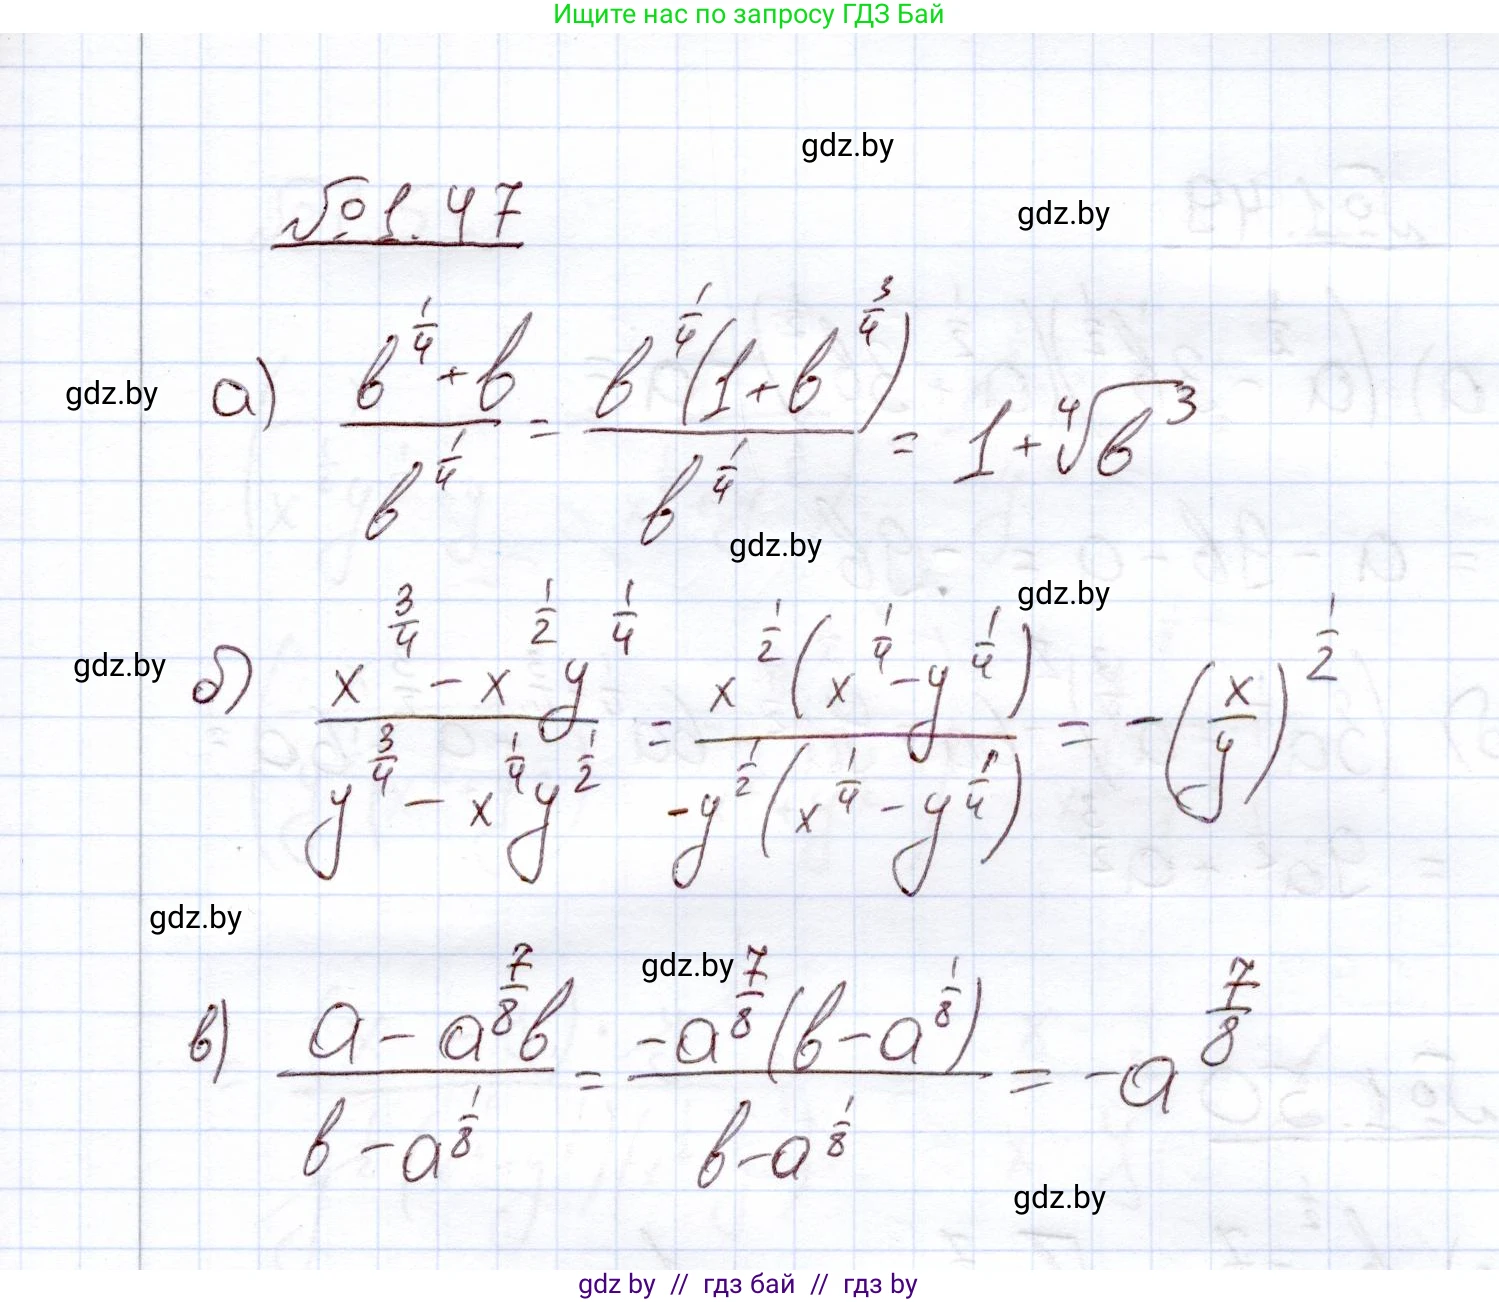 Ищите нас по запросу ГДЗ Бай
gdz.by
№1.47
gdz.by
gdz.by
а) (b^(1/4) + b) / b^(1/4) = b^(1/4)(1 + b^(3/4)) / b^(1/4) = 1 + ⁴√b³
gdz.by
gdz.by
gdz.by
б) (x^(3/4) − x^(1/2)y^(1/4)) / (y^(3/4) − x^(1/4)y^(1/2)) = x^(1/2)(x^(1/4) − y^(1/4)) / −y^(1/2)(x^(1/4) − y^(1/4)) = −(x/y)^(1/2)
gdz.by
gdz.by
в) (a − a^(7/8)b) / (b − a^(1/8)) = −a^(7/8)(b − a^(1/8)) / (b − a^(1/8)) = −a^(7/8)
gdz.by
gdz by // гдз бай // гдз by